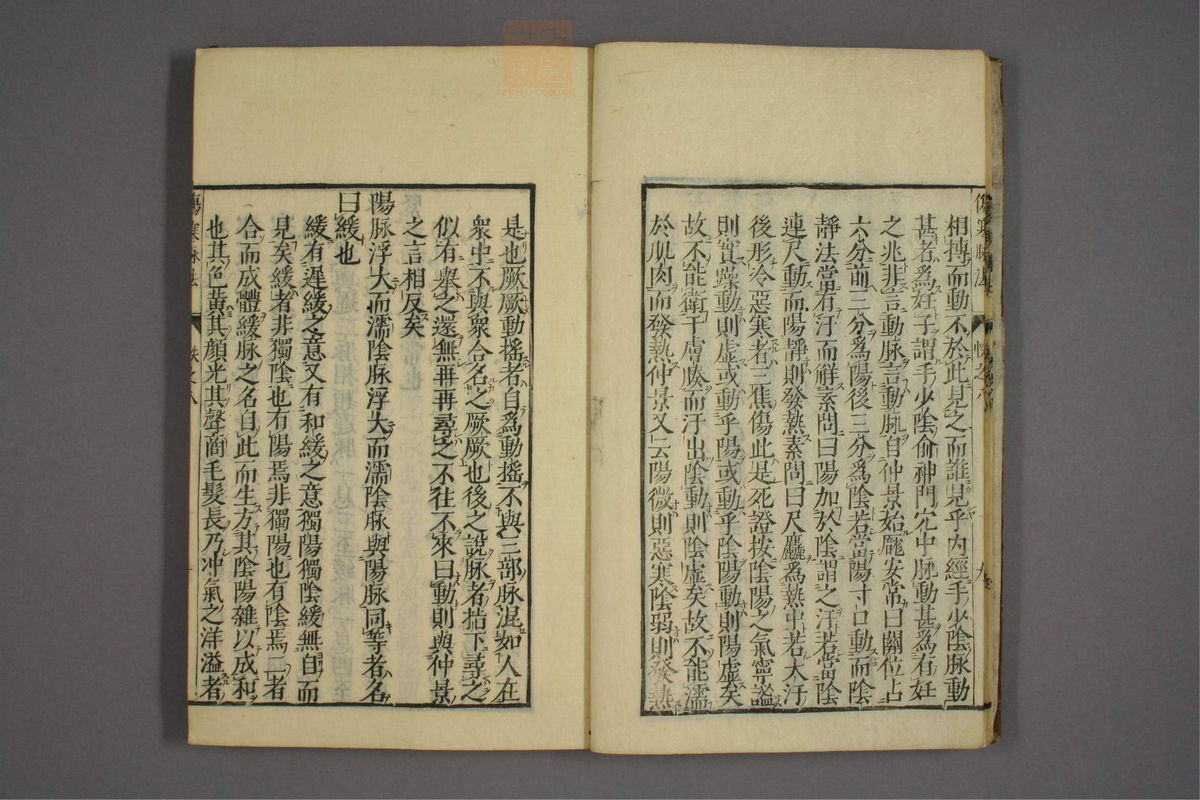 相摶而動不於此見之而誰見乎內經手少陰脉動
甚者爲妊子謂手少陰俞神門穴中脉動甚爲有妊
之兆非言動脉言動脉自仲景始龐安常曰關位占
六分前三分爲陽後三分爲陰若當陽寸口動而陰
靜法當有汗而解素問曰陽加於陰謂之汗若當陰
連尺動而陽靜則發熱素問曰尺麤爲熱中若大汗
後形冷惡寒者三焦傷此是死證按陰陽之氣寧謐
則實躁動則虛或動乎陽或動乎陰陽動則陽虛矣
故不能衛于膚腠而汗出陰動則陰虛矣故不能濡
於肌肉而發熱仲景又云陽微則惡寒陰弱則發熱
是也厥厥動搖者自爲動搖不與三部脉混如人在
衆中不與衆合名之厥厥也後之說脉者指下尋之
似有舉之還無再再尋之不往不來曰動則與仲景
之言相反矣
陽脉浮大而濡陰脉浮大而濡陰脉與陽脉同等者名
曰緩也
緩有遲緩之意又有和緩之意獨陽獨陰緩無自而
見矣緩者非獨陰也有陽焉非獨陽也有陰焉二者
合而成體緩脉之名自此而生方其陰陽雜以成和
也其色黃其顏光其聲商毛髮長乃冲氣之洋溢者
傷寒脉法